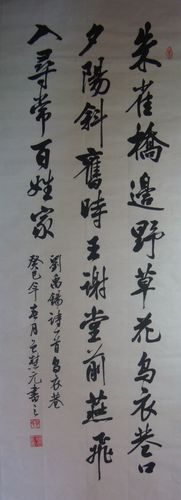 朱雀橋邊野草花烏衣巷口
夕陽斜舊時王謝堂前燕飛
入尋常百姓家
劉禹錫詩一首烏衣巷
癸巳年春月